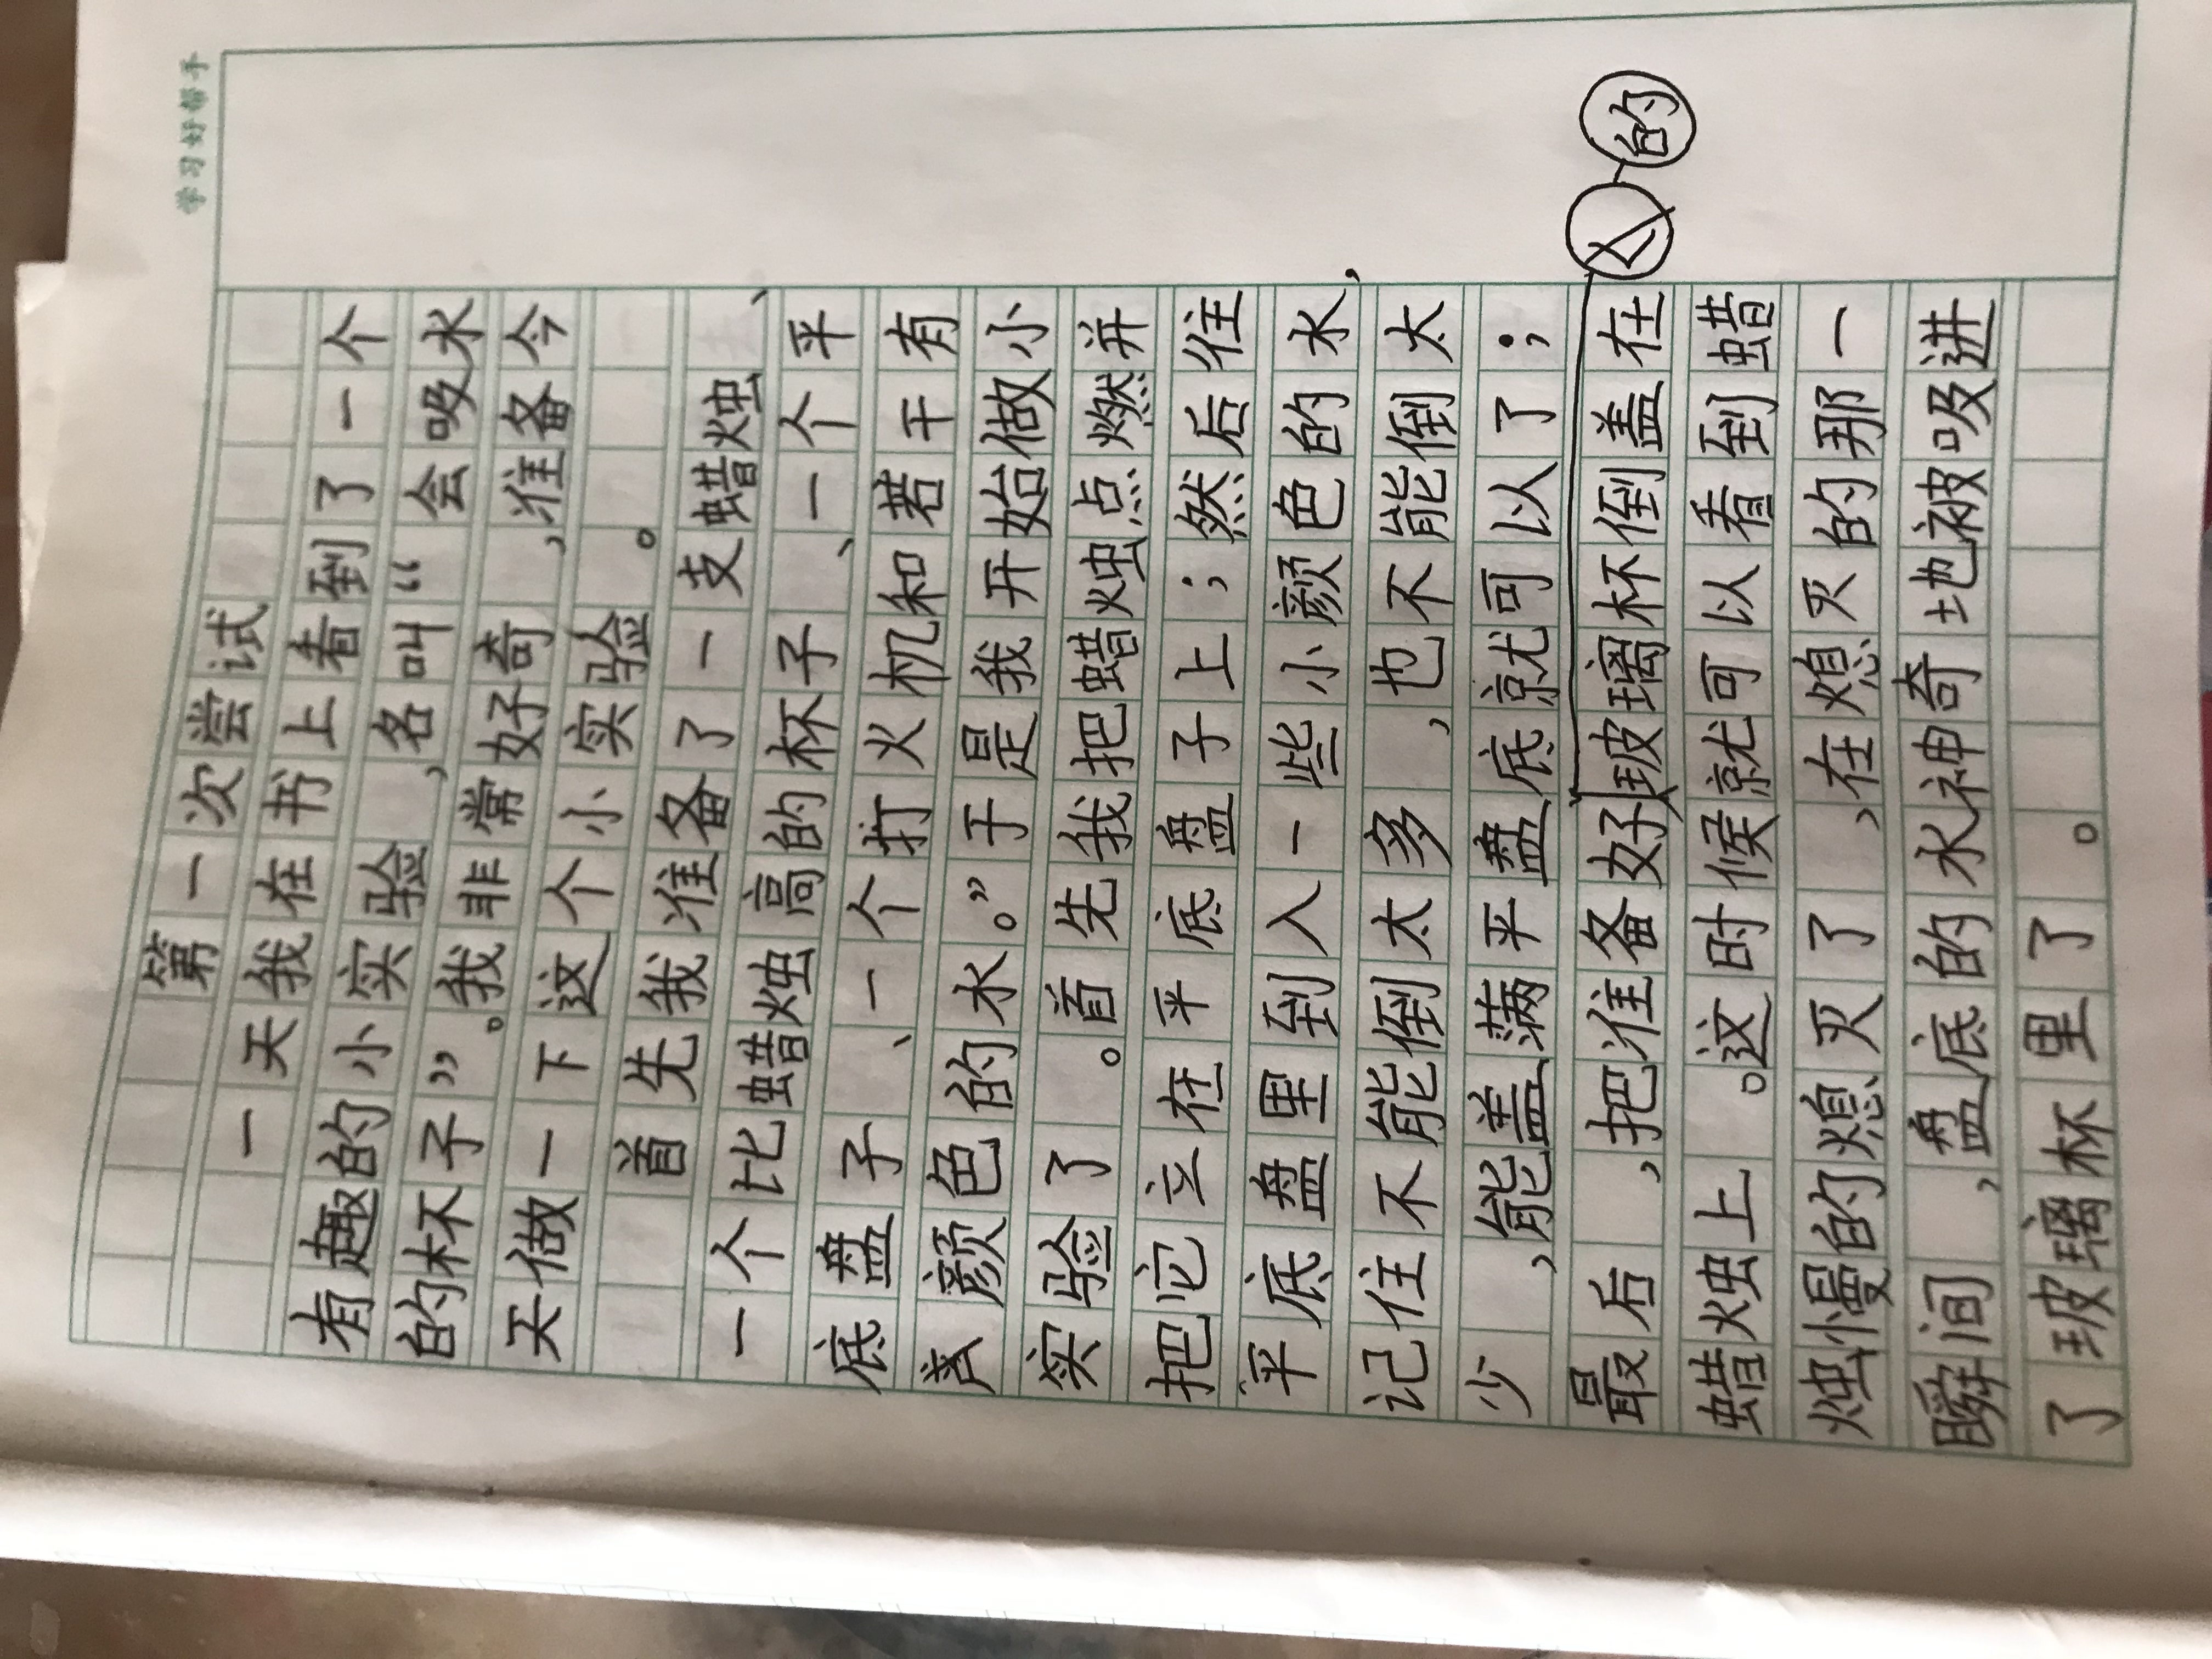 学习好帮手
第一次尝试
一天我在书上看到了一个
有趣的小实验，名叫“会吸水
的杯子”。我非常好奇，准备今
天做一下这个小实验。
首先我准备了一支蜡烛、
一个比蜡烛高的杯子、一个平
底盘子、一个打火机和若干有
颜色的水。”于是我开始做小
实验了。首先我把蜡烛点燃并
把它立在平底盘子上；然后往
平底盘里到入一些小颜色的水，
记住不能倒太多，也不能倒太
少，能盖满平盘底就可以了；
最后，把准备好玻璃杯倒盖在
的
蜡烛上。这时候就可以看到蜡
烛慢的熄灭了，在熄灭的那一
瞬间，盘底的水神奇地被吸进
了玻璃杯里了。